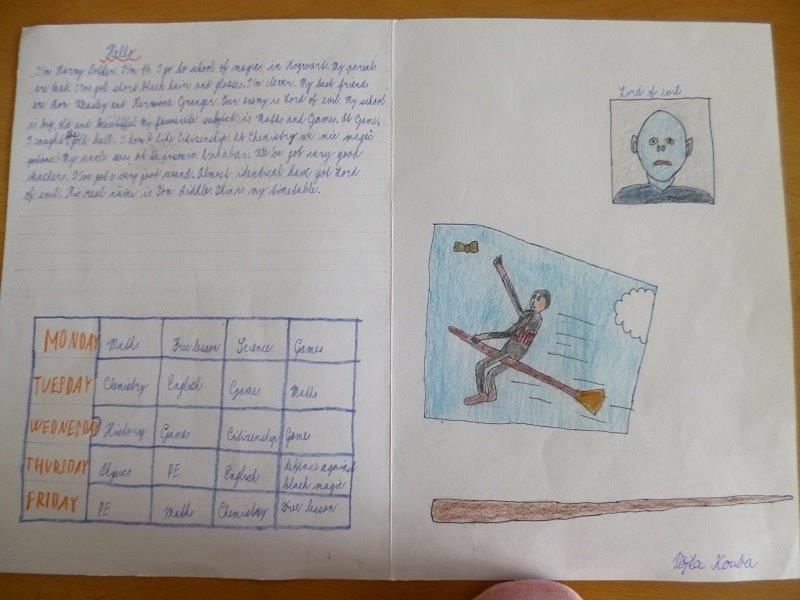 Hello
I'm Harry Potter. I'm 14. I go to school of magic in Hogwarts. My parents
are dead. I've got short black hair and glasses. I'm clever. My best friends
are Ron Weasley and Hermiona Granger. Our enemy is Lord of evil. My school
is big, old and beautiful. My favourite subject is Maths and Games. At Game,
I caught the gold ball. I don't like Citizenship. At Chemistry we mix magic
potions. My uncle was at the prison in Azkaban. We've got very good
teachers. I've got a very good wand. Almost identical have got Lord
of evil. His real name is Tom Riddle. This is my timetable.
MONDAY Maths Free lesson Science Games
TUESDAY Chemistry English Games Maths
WEDNESDAY History Games Citizenship Games
THURSDAY PE English defence against
black magic
FRIDAY PE Maths Chemistry Free lesson
Lord of evil
Vojta Kouba